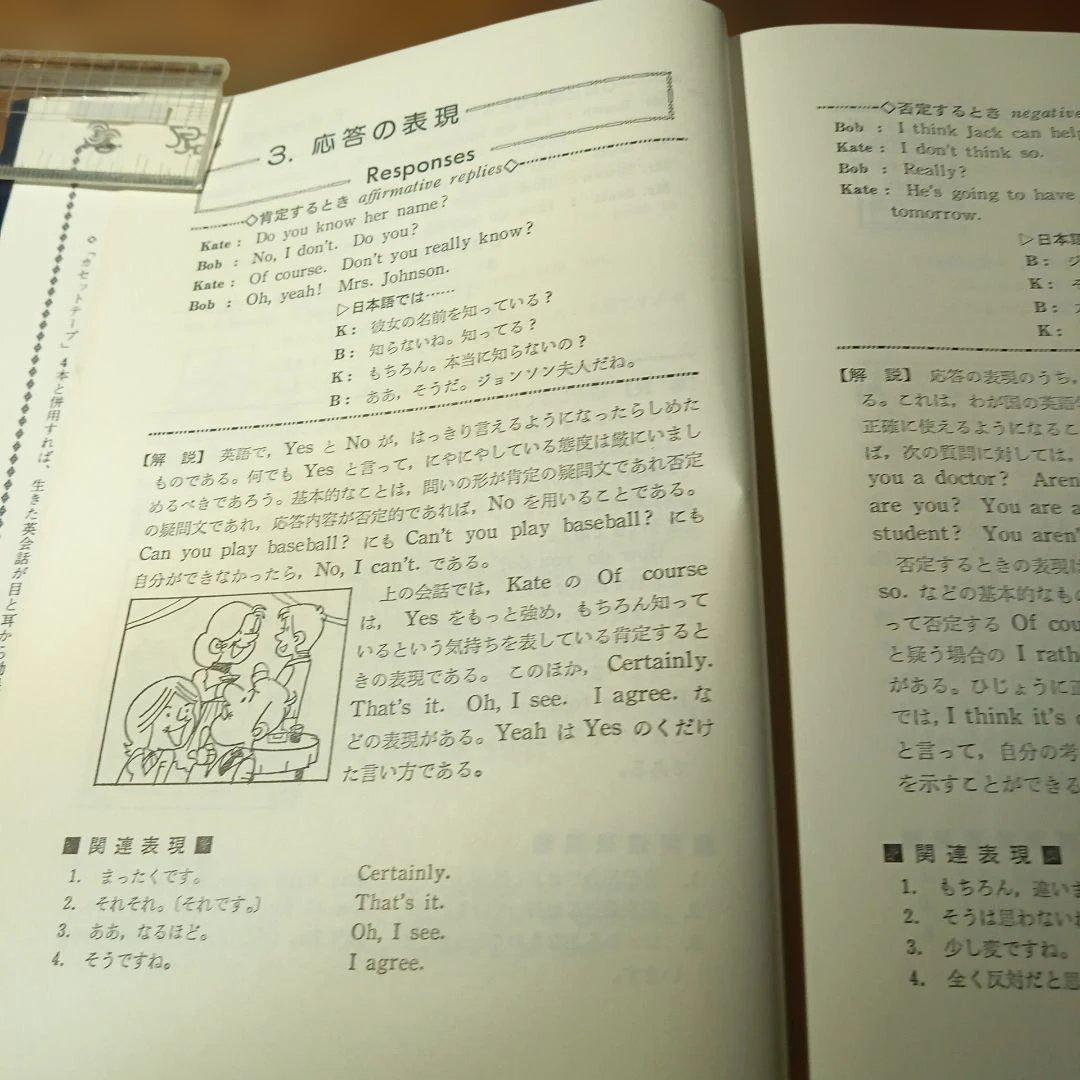 3. 応答の表現
Responses
◇肯定するとき affirmative replies◇
Kate : Do you know her name?
Bob : No, I don't. Do you?
Kate : Of course. Don't you really know?
Bob : Oh, yeah! Mrs. Johnson.
▷日本語では……
K : 彼女の名前を知っている？
B : 知らないね。知ってる？
K : もちろん。本当に知らないの？
B : ああ，そうだ。ジョンソン夫人だね。
【解 説】 英語で，Yes と No が，はっきり言えるようになったらしめた
ものである。何でも Yes と言って，にやにやしている態度は厳にいまし
めるべきであろう。基本的なことは，問いの形が肯定の疑問文であれ否定
の疑問文であれ，応答内容が否定的であれば，No を用いることである。
Can you play baseball? にも Can't you play baseball? にも
自分ができなかったら，No, I can't. である。
上の会話では，Kate の Of course
は，Yes をもっと強め，もちろん知って
いるという気持ちを表している肯定すると
きの表現である。このほか，Certainly.
That's it. Oh, I see. I agree. な
どの表現がある。Yeah は Yes のくだけ
た言い方である。
■関連表現■
1. まったくです。 Certainly.
2. それそれ。〔それです。〕 That's it.
3. ああ，なるほど。 Oh, I see.
4. そうですね。 I agree.
◇「カセットテープ」4本と併用すれば、生きた英会話が目と耳から
◇否定するとき negative
Bob : I think Jack can help
Kate : I don't think so.
Bob : Really?
Kate : He's going to have
tomorrow.
▷日本語
B : ジ
K : そ
B :
K :
【解 説】 応答の表現のうち，
る。これは，わが国の英語
正確に使えるようになるこ
ば，次の質問に対しては，
you a doctor? Aren
are you? You are a
student? You aren'
否定するときの表現は
so. などの基本的なもの
って否定する Of cou
と疑う場合の I rath
がある。ひじょうに正
では，I think it's
と言って，自分の考
を示すことができる
■関連表現■
1. もちろん，違いま
2. そうは思わないね
3. 少し変ですね。
4. 全く反対だと思